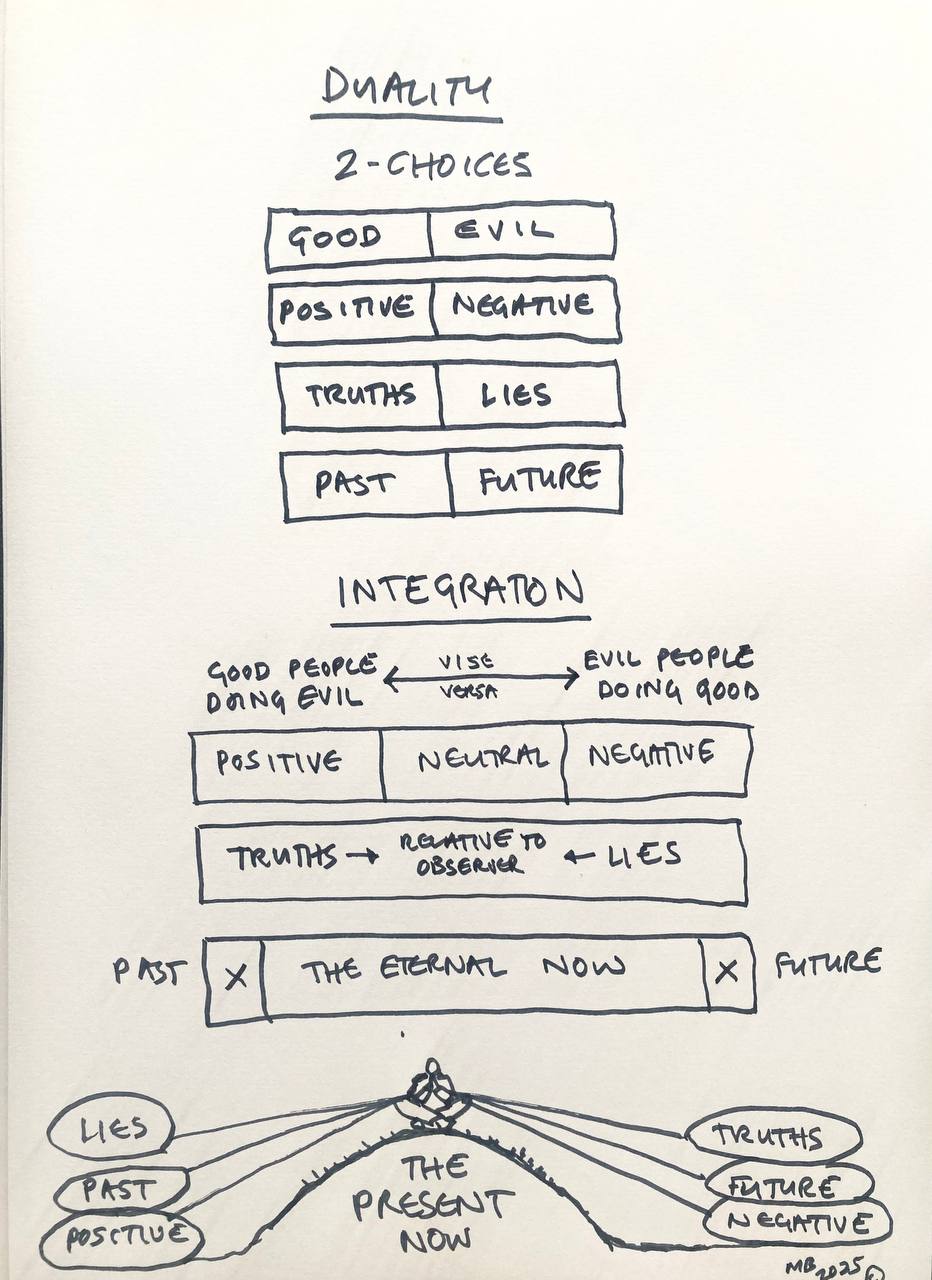 DUALITY
2-CHOICES
GOOD EVIL
POSITIVE NEGATIVE
TRUTHS LIES
PAST FUTURE
INTEGRATON
GOOD PEOPLE DOING EVIL
VISE VERSA
EVIL PEOPLE DOING GOOD
POSITIVE NEUTRAL NEGATIVE
TRUTHS → RELATIVE TO OBSERVER ← LIES
PAST X THE ETERNAL NOW X FUTURE
LIES TRUTHS
PAST FUTURE
POSITIVE NEGATIVE
THE
PRESENT
NOW
MB 2025 ©